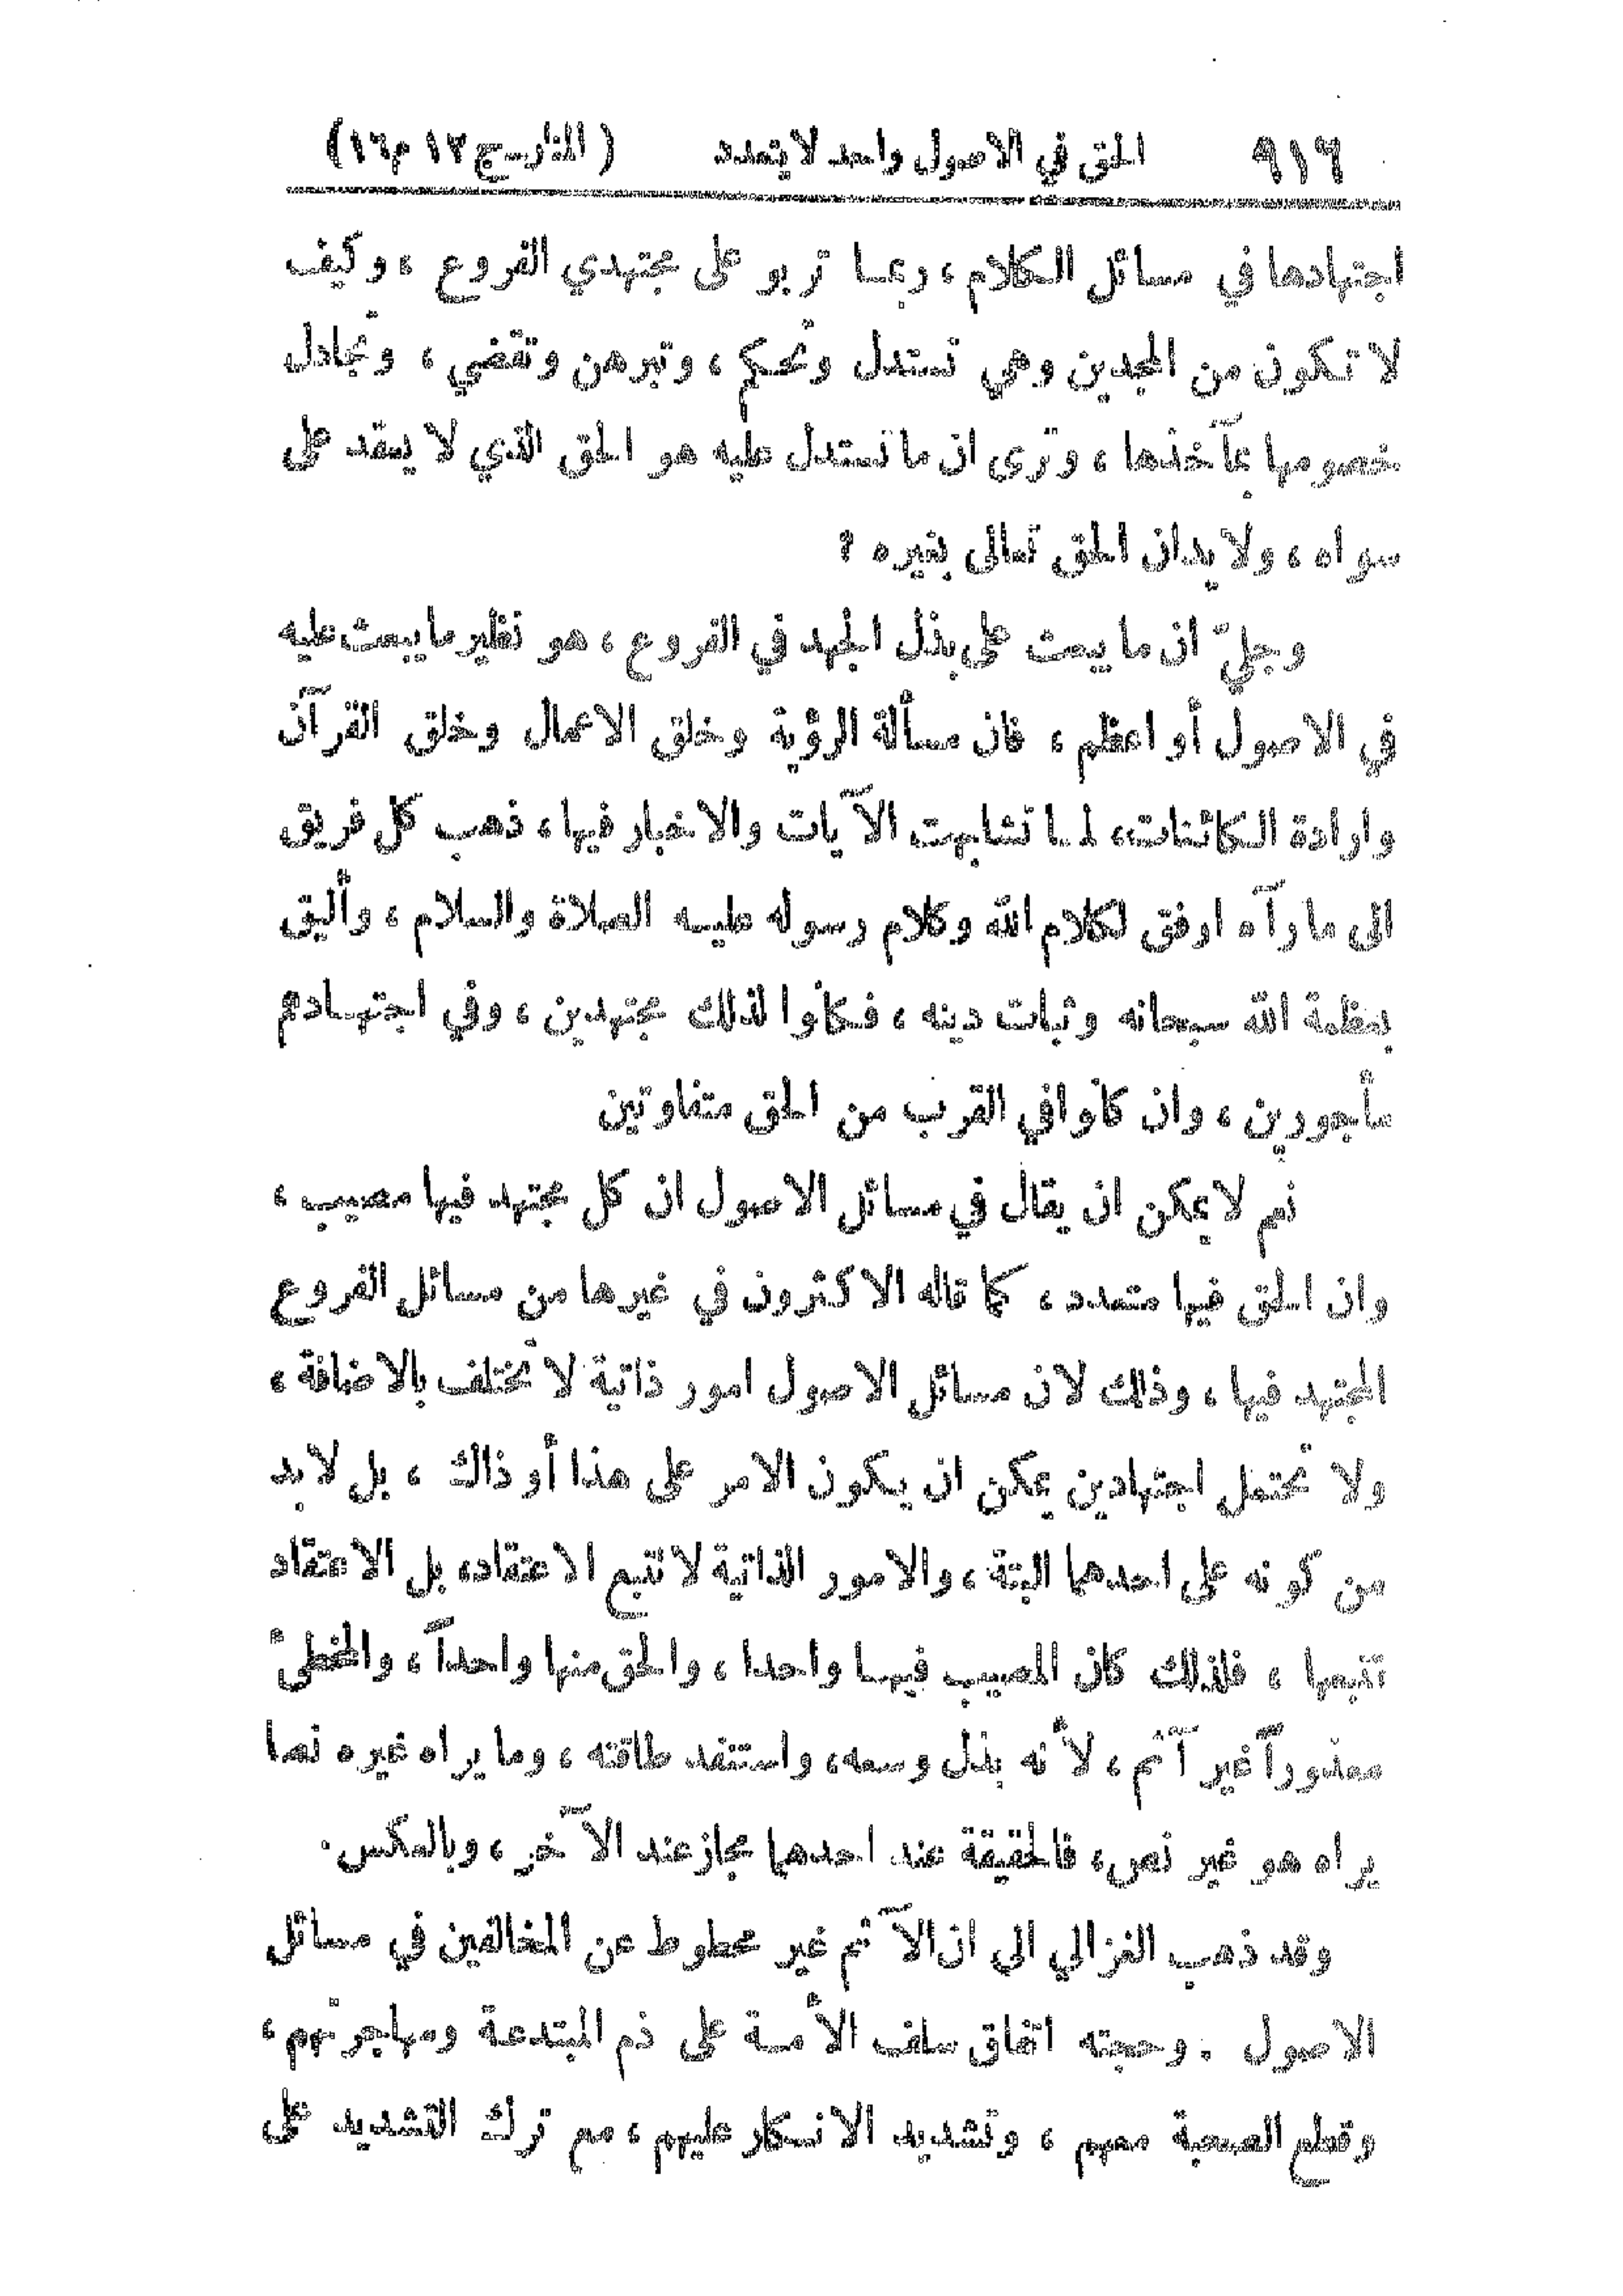 ٩١٦ الحق في الاصول واحد لا يتعدد (المنار ـ ج ١٢ م ١٦)
اجتهادها في مسائل الكلام، ربما تربو على مجتهدي الفروع، وكيف
لا تكون من المجدين وهي تستدل وتُحكِم، وتبرهن وتقضي، وتُجادل
خصومها بمآخذها، وترى ان ما تستدل عليه هو الحق الذي لا يعقد على
سواه، ولا يدان الحق تعالى بغيره؟
وجليّ ان ما يبعث على بذل الجهد في الفروع، هو نظير ما يبعث عليه
في الاصول أو اعظم، فان مسألة الرؤية وخلق الاعمال وخلق القرآن
وارادة الكائنات، لما تشابهت الآيات والاخبار فيها، ذهب كل فريق
الى ما رآه ارفق لكلام الله وكلام رسوله عليه الصلاة والسلام، وأليق
بعظمة الله سبحانه وثبات دينه، فكانوا لذلك مجتهدين، وفي اجتهادهم
مأجورين، وان كانوا في القرب من الحق متفاوتين
نعم لا يمكن ان يقال في مسائل الاصول ان كل مجتهد فيها مصيب،
وان الحق فيها متعدد، كما قاله الاكثرون في غيرها من مسائل الفروع
المجتهد فيها، وذلك لان مسائل الاصول امور ذاتية لا تختلف بالاضافة،
ولا تحتمل اجتهادين يمكن ان يكون الامر على هذا أو ذاك، بل لا بد
من كونه على احدهما البتة، والامور الذاتية لا تتبع الاعتقاد، بل الاعتقاد
تتبعها، فلذلك كان المصيب فيها واحدا، والحق منها واحداً، والمخطئ
معذوراً غير آثم، لأنه بذل وسعه، واستنفد طاقته، وما يراه غيره نصا
يراه هو غير نص، فالحقيقة عند احدهما مجاز عند الآخر، وبالعكس.
وقد ذهب الغزالي الى ان الآثم غير محطوط عن المخالفين في مسائل
الاصول. وحجته اتفاق سلف الأمة على ذم المبتدعة ومهاجرتهم،
وقطع الصحبة معهم، وتشديد الانكار عليهم، مع ترك التشديد على